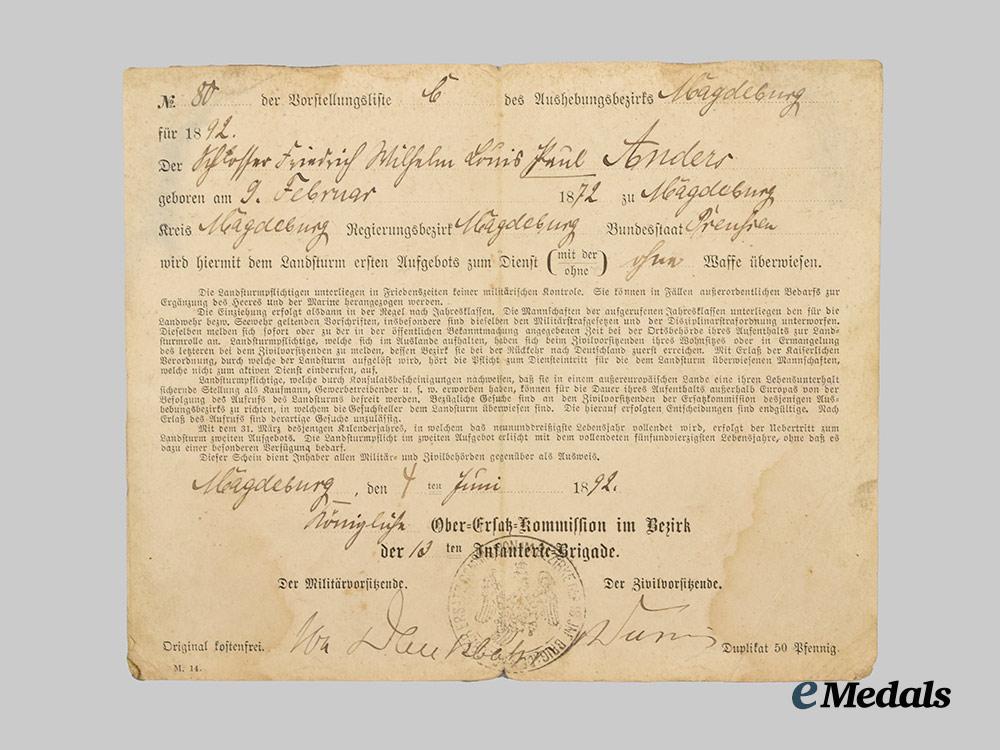 № 80 der Vorstellungsliste C des Aushebungsbezirks Magdeburg
für 1892.
Der Schlosser Friedrich Wilhelm Louis Paul Anders
geboren am 9. Februar 1872 zu Magdeburg
Kreis Magdeburg Regierungsbezirk Magdeburg Bundesstaat Preußen
wird hiermit dem Landsturm ersten Aufgebots zum Dienst (mit der / ohne) ohne Waffe überwiesen.
Die Landsturmpflichtigen unterliegen in Friedenszeiten keiner militärischen Kontrole. Sie können in Fällen außerordentlichen Bedarfs zur
Ergänzung des Heeres und der Marine herangezogen werden.
Die Einziehung erfolgt alsdann in der Regel nach Jahresklassen. Die Mannschaften der aufgerufenen Jahresklassen unterliegen den für die
Landwehr bezw. Seewehr geltenden Vorschriften, insbesondere sind dieselben den Militärstrafgesetzen und der Disziplinarstrafordnung unterworfen.
Dieselben melden sich sofort oder zu der in der öffentlichen Bekanntmachung angegebenen Zeit bei der Ortsbehörde ihres Aufenthalts zur Land-
sturmrolle an. Landsturmpflichtige, welche sich im Auslande aufhalten, haben sich beim Zivilvorsitzenden ihres Wohnsitzes oder in Ermangelung
des letzteren bei dem Zivilvorsitzenden zu melden, dessen Bezirk sie bei der Rückkehr nach Deutschland zuerst erreichen. Mit Erlaß der Kaiserlichen
Verordnung, durch welche der Landsturm aufgelöst wird, hört die Pflicht zum Diensteintritt für die dem Landsturm überwiesenen Mannschaften,
welche nicht zum aktiven Dienst einberufen, auf.
Landsturmpflichtige, welche durch Konsulatsbescheinigungen nachweisen, daß sie in einem außereuropäischen Lande eine ihren Lebensunterhalt
sichernde Stellung als Kaufmann, Gewerbetreibender u. s. w. erworben haben, können für die Dauer ihres Aufenthalts außerhalb Europas von der
Befolgung des Aufrufs des Landsturms befreit werden. Bezügliche Gesuche sind an den Zivilvorsitzenden der Ersatzkommission desjenigen Aus-
hebungsbezirks zu richten, in welchem die Gesuchsteller dem Landsturm überwiesen sind. Die hierauf erfolgten Entscheidungen sind endgültige. Nach
Erlaß des Aufrufs sind derartige Gesuche unzulässig.
Mit dem 31. März desjenigen Kalenderjahres, in welchem das neununddreißigste Lebensjahr vollendet wird, erfolgt der Uebertritt zum
Landsturm zweiten Aufgebots. Die Landsturmpflicht im zweiten Aufgebot erlischt mit dem vollendeten fünfundvierzigsten Lebensjahre, ohne daß es
dazu einer besonderen Verfügung bedarf.
Dieser Schein dient Inhaber allen Militär- und Zivilbehörden gegenüber als Ausweis.
Magdeburg, den 4 ten Juni 1892.
Königliche Ober-Ersatz-Kommission im Bezirk
der 13 ten Infanterie-Brigade.
Der Militärvorsitzende. Der Zivilvorsitzende.
Original kostenfrei. Duplikat 50 Pfennig.
M. 14.
eMedals